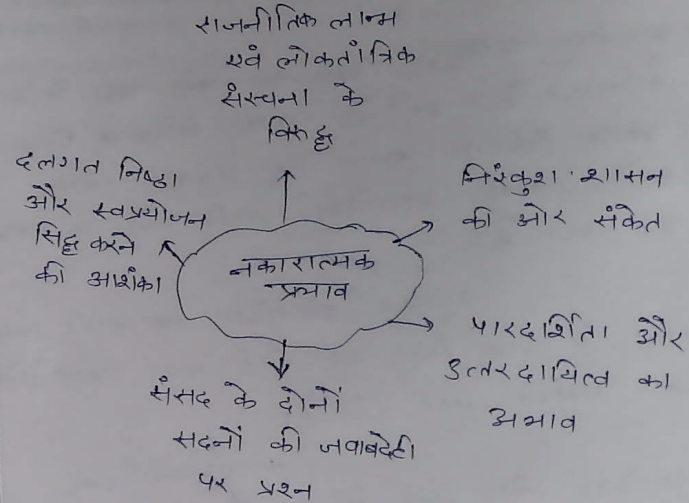 राजनीतिक लाभ
एवं लोकतांत्रिक
संरचना के
विरुद्ध
दलगत निष्ठा
और स्वप्रयोजन
सिद्ध करने
की आशंका
निरंकुश शासन
की ओर संकेत
नकारात्मक
प्रभाव
पारदर्शिता और
उत्तरदायित्व का
अभाव
संसद के दोनों
सदनों की जवाबदेही
पर प्रश्न